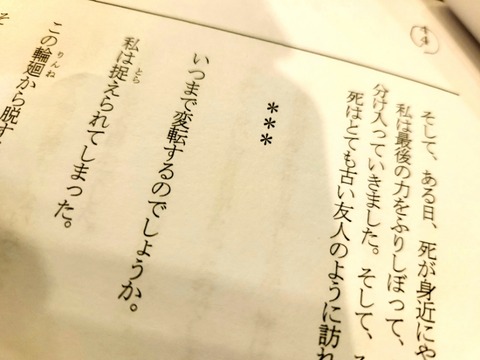 そして、ある日、死が身近にや
私は最後の力をふりしぼって、
分け入っていきました。そして、
死はとても古い友人のように訪れ
***
いつまで変転するのでしょうか。
私は捉えられてしまった。
とら
この輪廻から脱す
りんね
そ